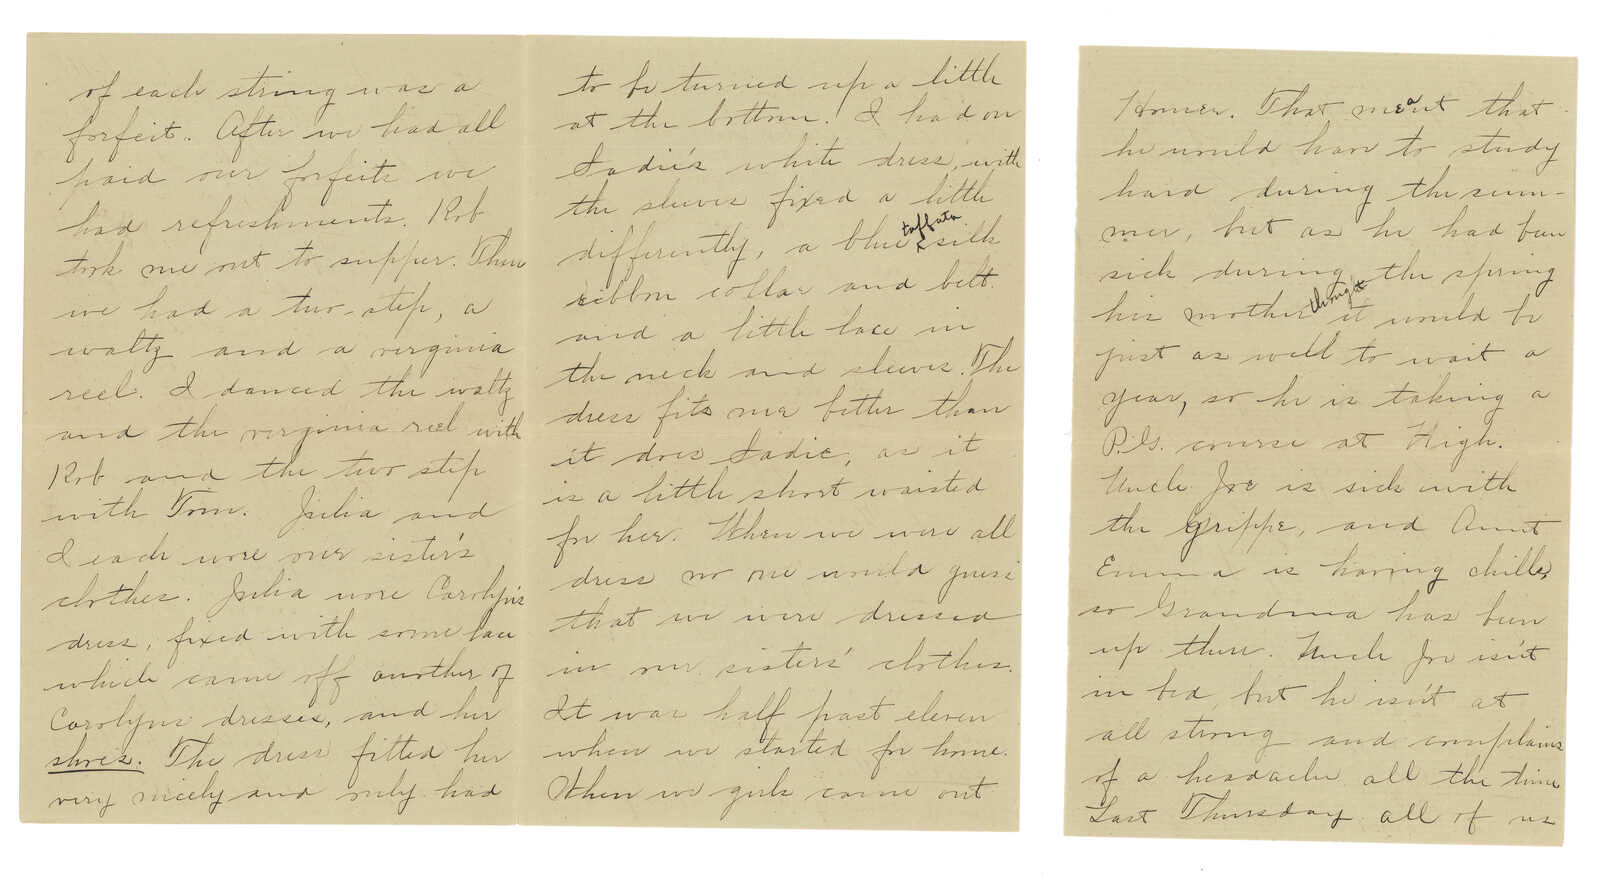 of each string was a
forfeit. After we had all
paid our forfeits we
had refreshments. Rob
took me out to supper. Then
we had a two-step, a
waltz and a virginia
reel. I danced the waltz
and the virginia reel with
Rob and the two step
with Tom. Julia and
I each wore our sister's
clothes. Julia wore Carolyn's
dress, fixed with some lace
which came off another of
Carolyns dresses, and her
shoes. The dress fitted her
very nicely and only had
to be turned up a little
at the bottom. I had on
Sadie's white dress, with
the sleeves fixed a little
differently, a blue taffata silk
ribbon collar and belt.
and a little lace in
the neck and sleeves. The
dress fits me better than
it does Sadie, as it
is a little short waisted
for her. When we were all
dress no one would guess
that we were dressed
in our sisters' clothes.
It was half past eleven
when we started for home.
When we girls came out
Homer. That meant that
he would have to study
hard during the sum-
mer, but as he had been
sick during the spring
his mother thought it would be
just as well to wait a
year, so he is taking a
P.G. course at High.
Uncle Joe is sick with
the grippe, and Aunt
Emma is having chills,
so Grandma has been
up there. Uncle Joe isn't
in bed, but he isn't at
all strong and complains
of a headache all the time
Last Thursday all of us